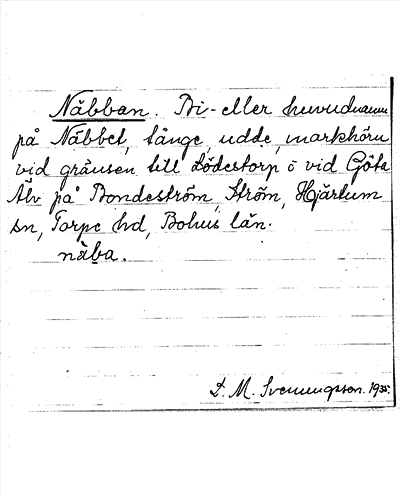 Näbban. Bi- eller huvudnamn
på Näbbet, tånge, udde, markhörn
vid gränsen till Lödestorp ö vid Göta
Älv på Bondeström, Ström, Hjärtum
sn, Torpe hd, Bohus län.
näba.
D. M. Svenungsson. 1935.